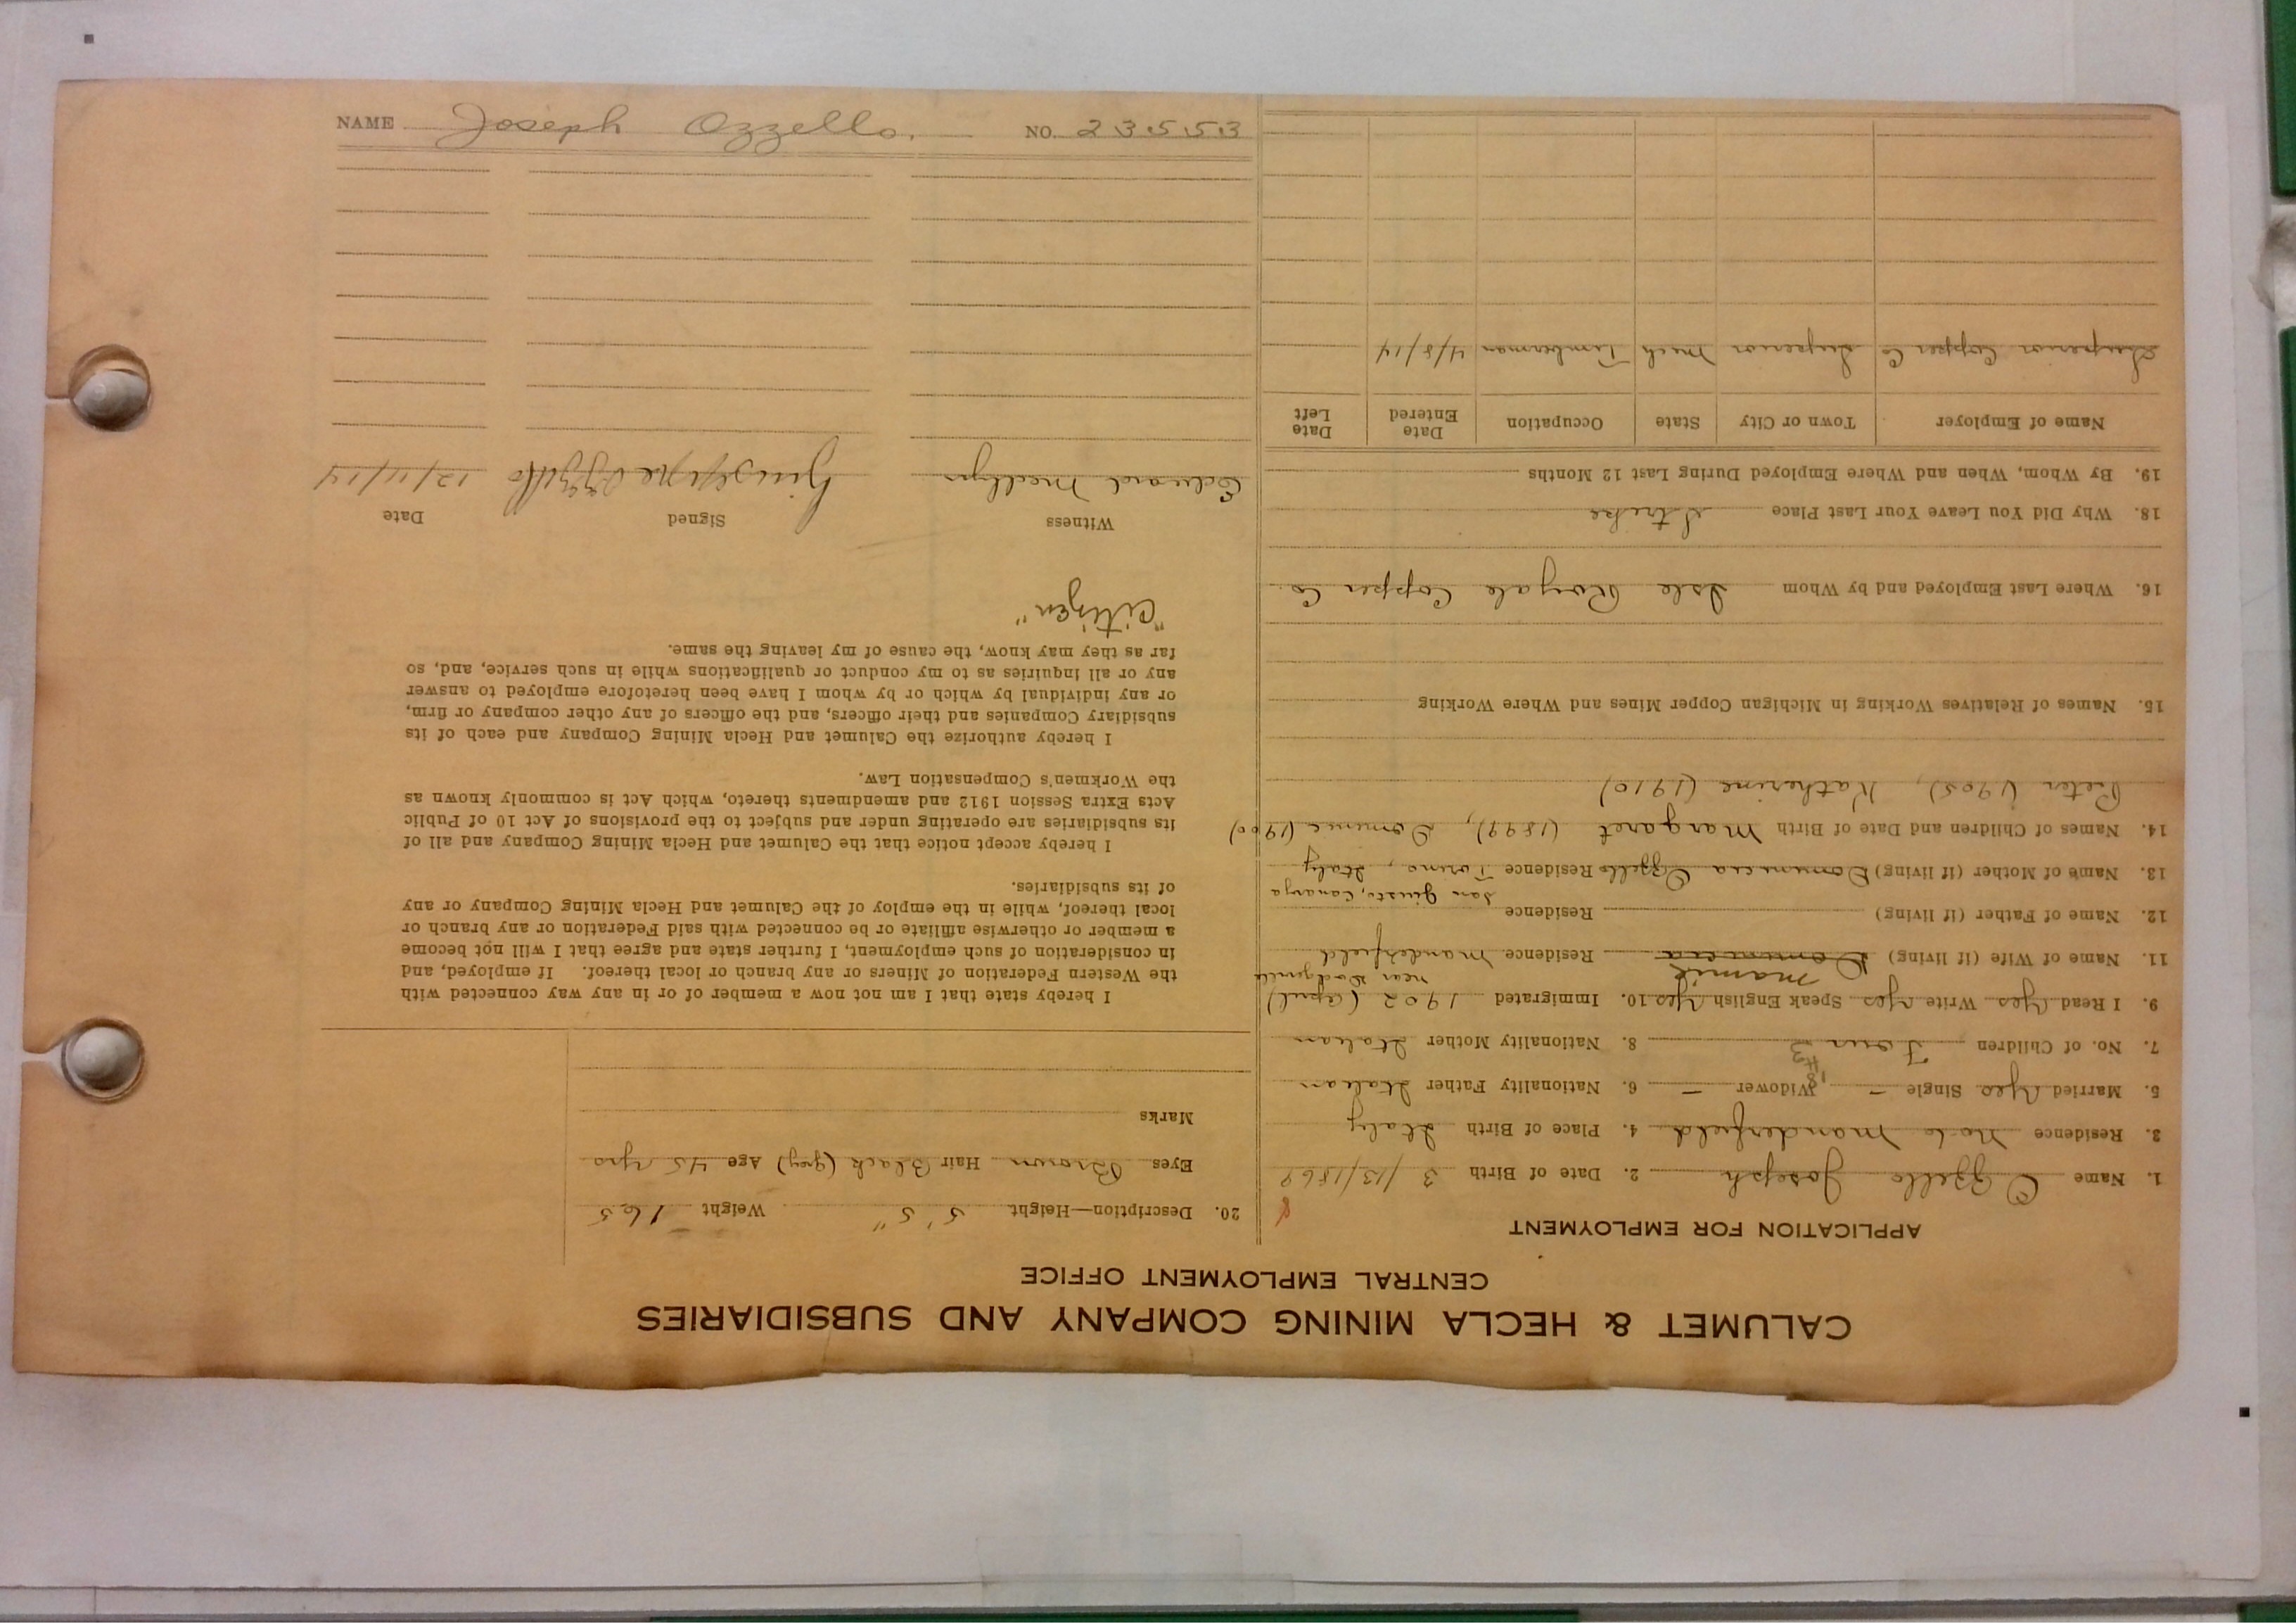 CALUMET & HECLA MINING COMPANY AND SUBSIDIARIES
CENTRAL EMPLOYMENT OFFICE
APPLICATION FOR EMPLOYMENT
1. Name Ozzello Joseph 2. Date of Birth 3/13/1869
3. Residence No 60 Manderfield 4. Place of Birth Italy
5. Married Yes Single — Widower — 6. Nationality Father Italian
7. No. of Children Four 8. Nationality Mother Italian
9. I Read Yes Write Yes Speak English Yes 10. Immigrated 1902 (April)
Mamie near Dodgeville
11. Name of Wife (if living) Domenica Residence Manderfield
12. Name of Father (if living) Residence
San Giusto, Canarya
13. Name of Mother (if living) Domenica Ozzello Residence Torino, Italy
14. Names of Children and Date of Birth Margaret (1899), Dominic (1900)
Peter (1905), Katherine (1910)
15. Names of Relatives Working in Michigan Copper Mines and Where Working
16. Where Last Employed and by Whom Isle Royale Copper Co.
18. Why Did You Leave Your Last Place Strike
19. By Whom, When and Where Employed During Last 12 Months
Name of Employer Town or City State Occupation Date Entered Date Left
Superior Copper Co Superior Mich Timberman 4/8/14
20. Description—Height 5' 5" Weight 165
Eyes Brown Hair Black (grey) Age 45 yrs
Marks
I hereby state that I am not now a member of or in any way connected with
the Western Federation of Miners or any branch or local thereof. If employed, and
in consideration of such employment, I further state and agree that I will not become
a member or otherwise affiliate or be connected with said Federation or any branch or
local thereof, while in the employ of the Calumet and Hecla Mining Company or any
of its subsidiaries.
I hereby accept notice that the Calumet and Hecla Mining Company and all of
its subsidiaries are operating under and subject to the provisions of Act 10 of Public
Acts Extra Session 1912 and amendments thereto, which Act is commonly known as
the Workmen's Compensation Law.
I hereby authorize the Calumet and Hecla Mining Company and each of its
subsidiary Companies and their officers, and the officers of any other company or firm,
or any individual by which or by whom I have been heretofore employed to answer
any or all inquiries as to my conduct or qualifications while in such service, and, so
far as they may know, the cause of my leaving the same.
"Citizen"
Witness Signed Date
Edward Medlyn Giuseppe Ozzello 12/11/14
NAME Joseph Ozzello. NO. 23553